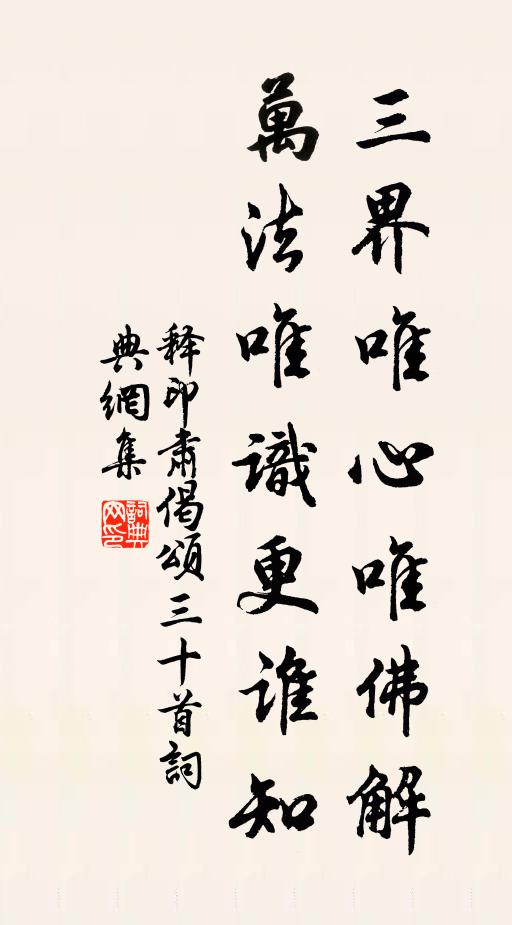 三界唯心唯佛解
萬法唯識更誰知
释印肅偈頌三十首詞
典網集
詞典网印